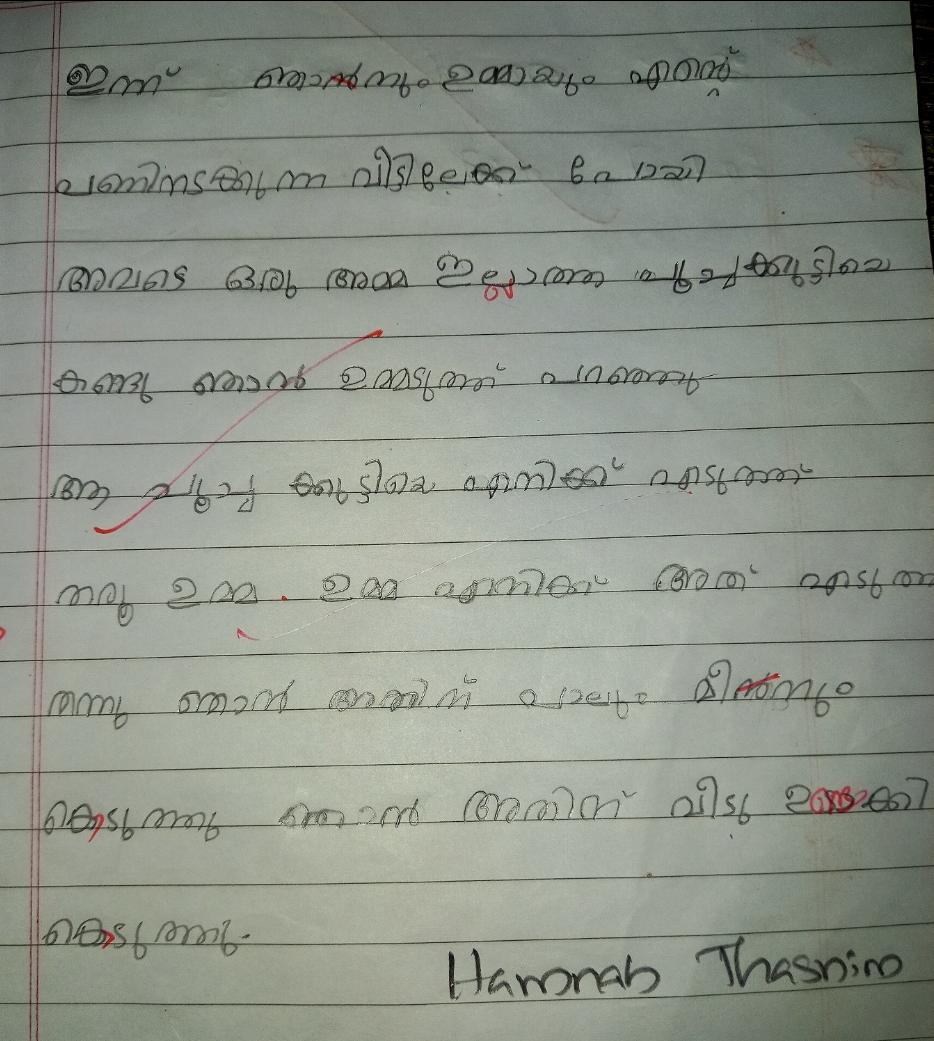 ഇന്ന് ഞാനും ഉമ്മയും എന്റെ
പണിനടക്കുന്ന വീട്ടിലേക്ക് പോയി
അവടെ ഒരു അമ്മ ഇല്ലാത്ത പൂച്ചക്കുട്ടിയെ
കണ്ടു ഞാൻ ഉമ്മടുത്ത് പറഞ്ഞു
ആ പൂച്ച കുട്ടിയെ എനിക്ക് എടുത്ത്
തരു ഉമ്മ. ഉമ്മ എനിക്ക് അത് എടുത്ത
തന്നു ഞാൻ അതിന് പാലും മീനും
കൊടുത്തു ഞാൻ അതിന് വീടു ഉണ്ടാക്കി
കൊടുത്തു.
Hannah Thasnim